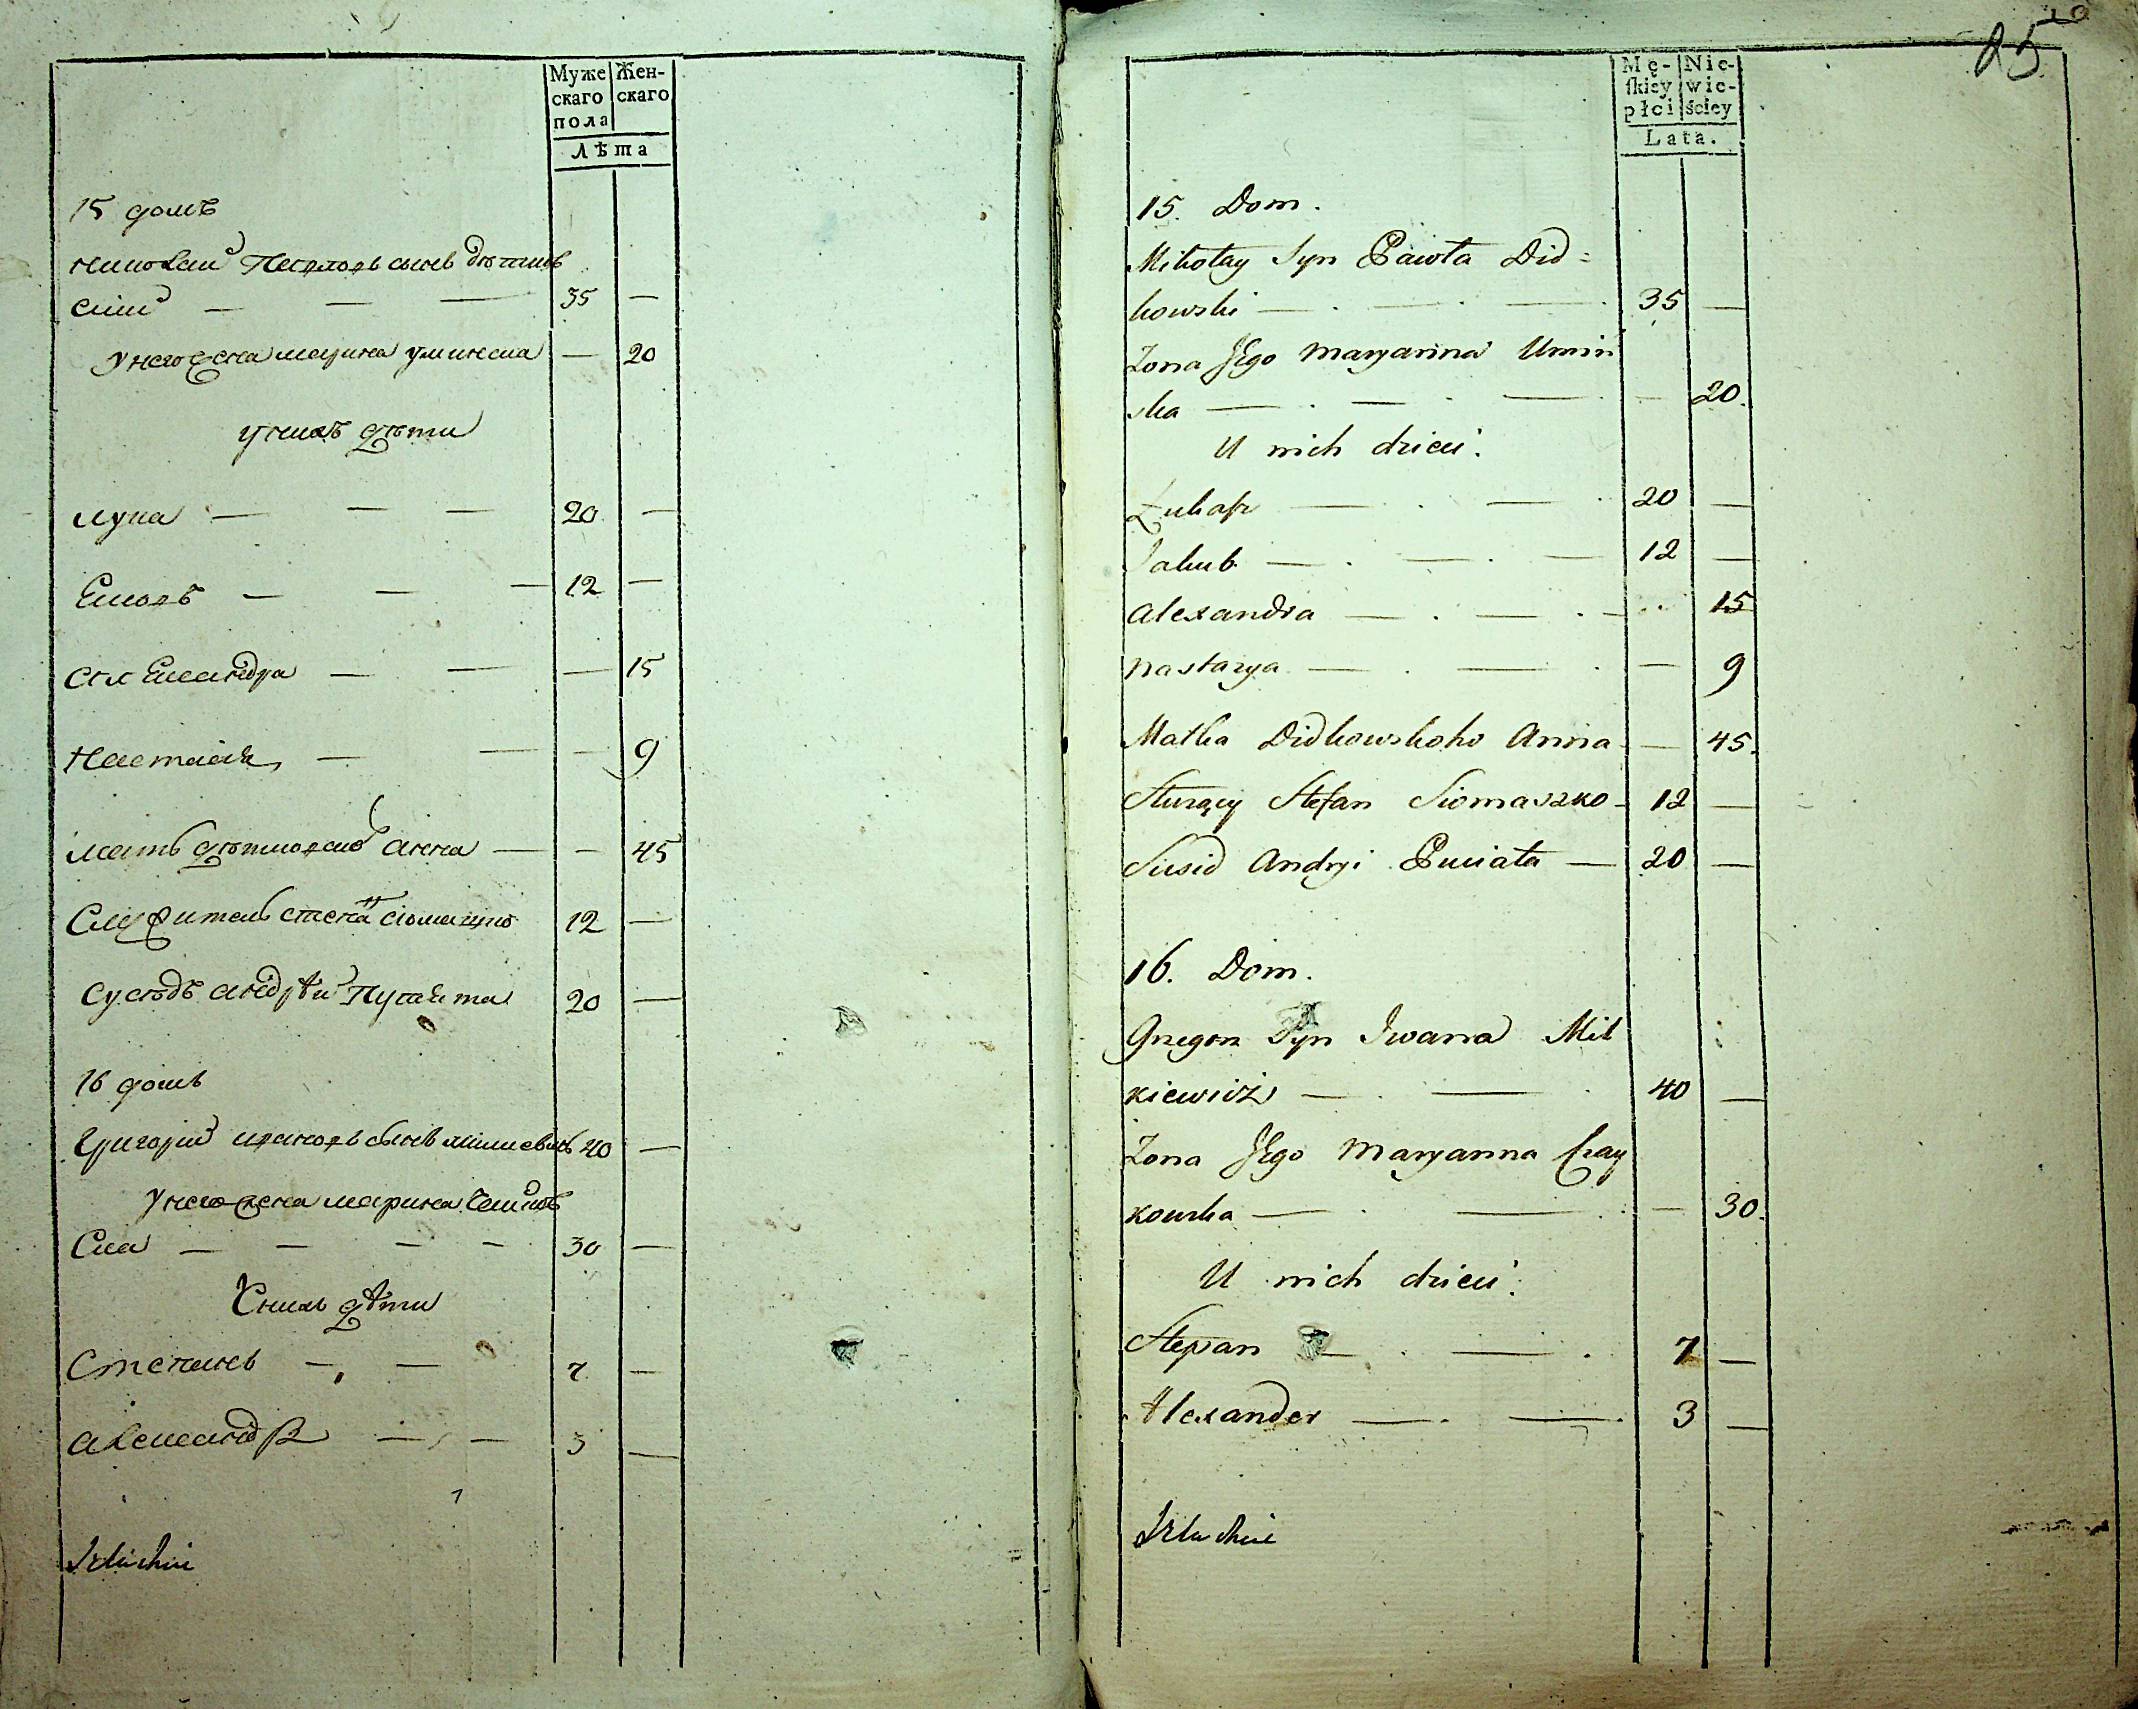 Муже
скаго
пола
Жен-
скаго
Лѣта
15 домъ
николай Павловъ сынъ дѣтков
скій — — — 35 —
У него жена марина уминска — 20
у нихъ дѣти
лука — — — 20 —
Яковъ — — — 12 —
Александра — — — 15
Настасія — — — 9
мать дѣтковско анна — — 45
Служитель степанъ сіомашко 12 —
Сусѣдъ андрѣй Пуцята 20 —
16 домъ
Григорій ивановъ сынъ милкевичъ 40 —
У него жена марина
Ска — — — — 30 —
У нихъ дѣти
Степанъ — — 7 —
александръ — — 3 —
25
Mę-
skiey
płci
Nie-
wie-
ściey
Lata.
15. Dom.
Mikołay Syn Pawła Did=
kowski — — — 35 —
Zona Jego Maryanna Umiń
ska — — — — 20.
U nich dzieci.
Łukasz — — 20 —
Jakub — — — 12 —
Alexandra — — — 15
Nastazya — — — 9
Matka Didkowskoho Anna — 45.
Służący Stefan Siomaszko — 12 —
Susid Andryi Puciata — 20 —
16. Dom.
Gregorz Syn Iwana Mil
kiewicz — — 40 —
Zona Jego Maryanna Czay
kowska — — — 30.
U nich dzieci.
Stepan — — 7 —
Alexander — — 3 —